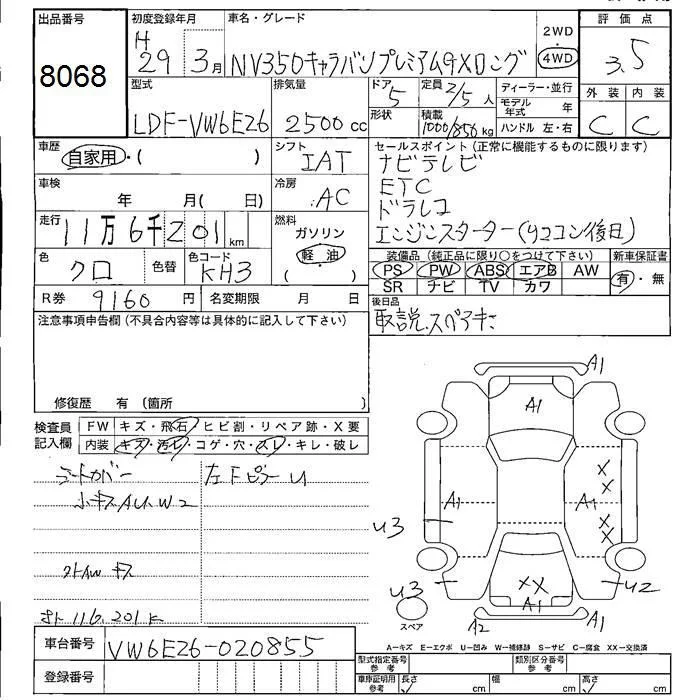 出品番号
8068
初度登録年月
H
29 3月
車名・グレード
NV350キャラバンプレミアムGXロング
2WD
4WD
評価点
3.5
型式
LDF-VW6E26
排気量
2500cc
ドア
5
定員 2/5人
形状
積載 1000/850kg
ディーラー・並行
モデル年式 年
ハンドル 左・右
外装 内装
C C
車歴
自家用・( )
シフト
IAT
セールスポイント(正常に機能するものに限ります)
ナビテレビ
ETC
ドラレコ
エンジンスターター(リモコン後日)
車検
年 月( 日)
冷房
AC
走行
11万6千201km
燃料
ガソリン
(軽油)
色
クロ
色替
色コード
KH3
装備品(純正品に限り○をつけて下さい)
PS PW ABS エアB AW
SR ナビ TV カワ
新車保証書
有・無
R券 9160円
名変期限 月 日
後日品
取説.スペアキー
注意事項申告欄(不具合内容等は具体的に記入して下さい)
修復歴 有(箇所 )
検査員記入欄
FW キズ・飛石・ヒビ割・リペア跡・X要
内装 キズ・汚レ・コゲ・穴・スレ・キレ・破レ
左Fピラー U
小キズAU.W2
オト 116.201K
A1
A1
A1
A1
X
X
X
X
U3
XX
U3
U2
A1
A2
A1
スペア
車台番号
VW6E26-020855
登録番号
A…キズ E…エクボ U…凹み W…補修跡 S…サビ C…腐食 XX…交換済
型式指定番号 参考
類別区分番号 参考
車庫証明用 参考
長さ cm
幅 cm
高さ cm